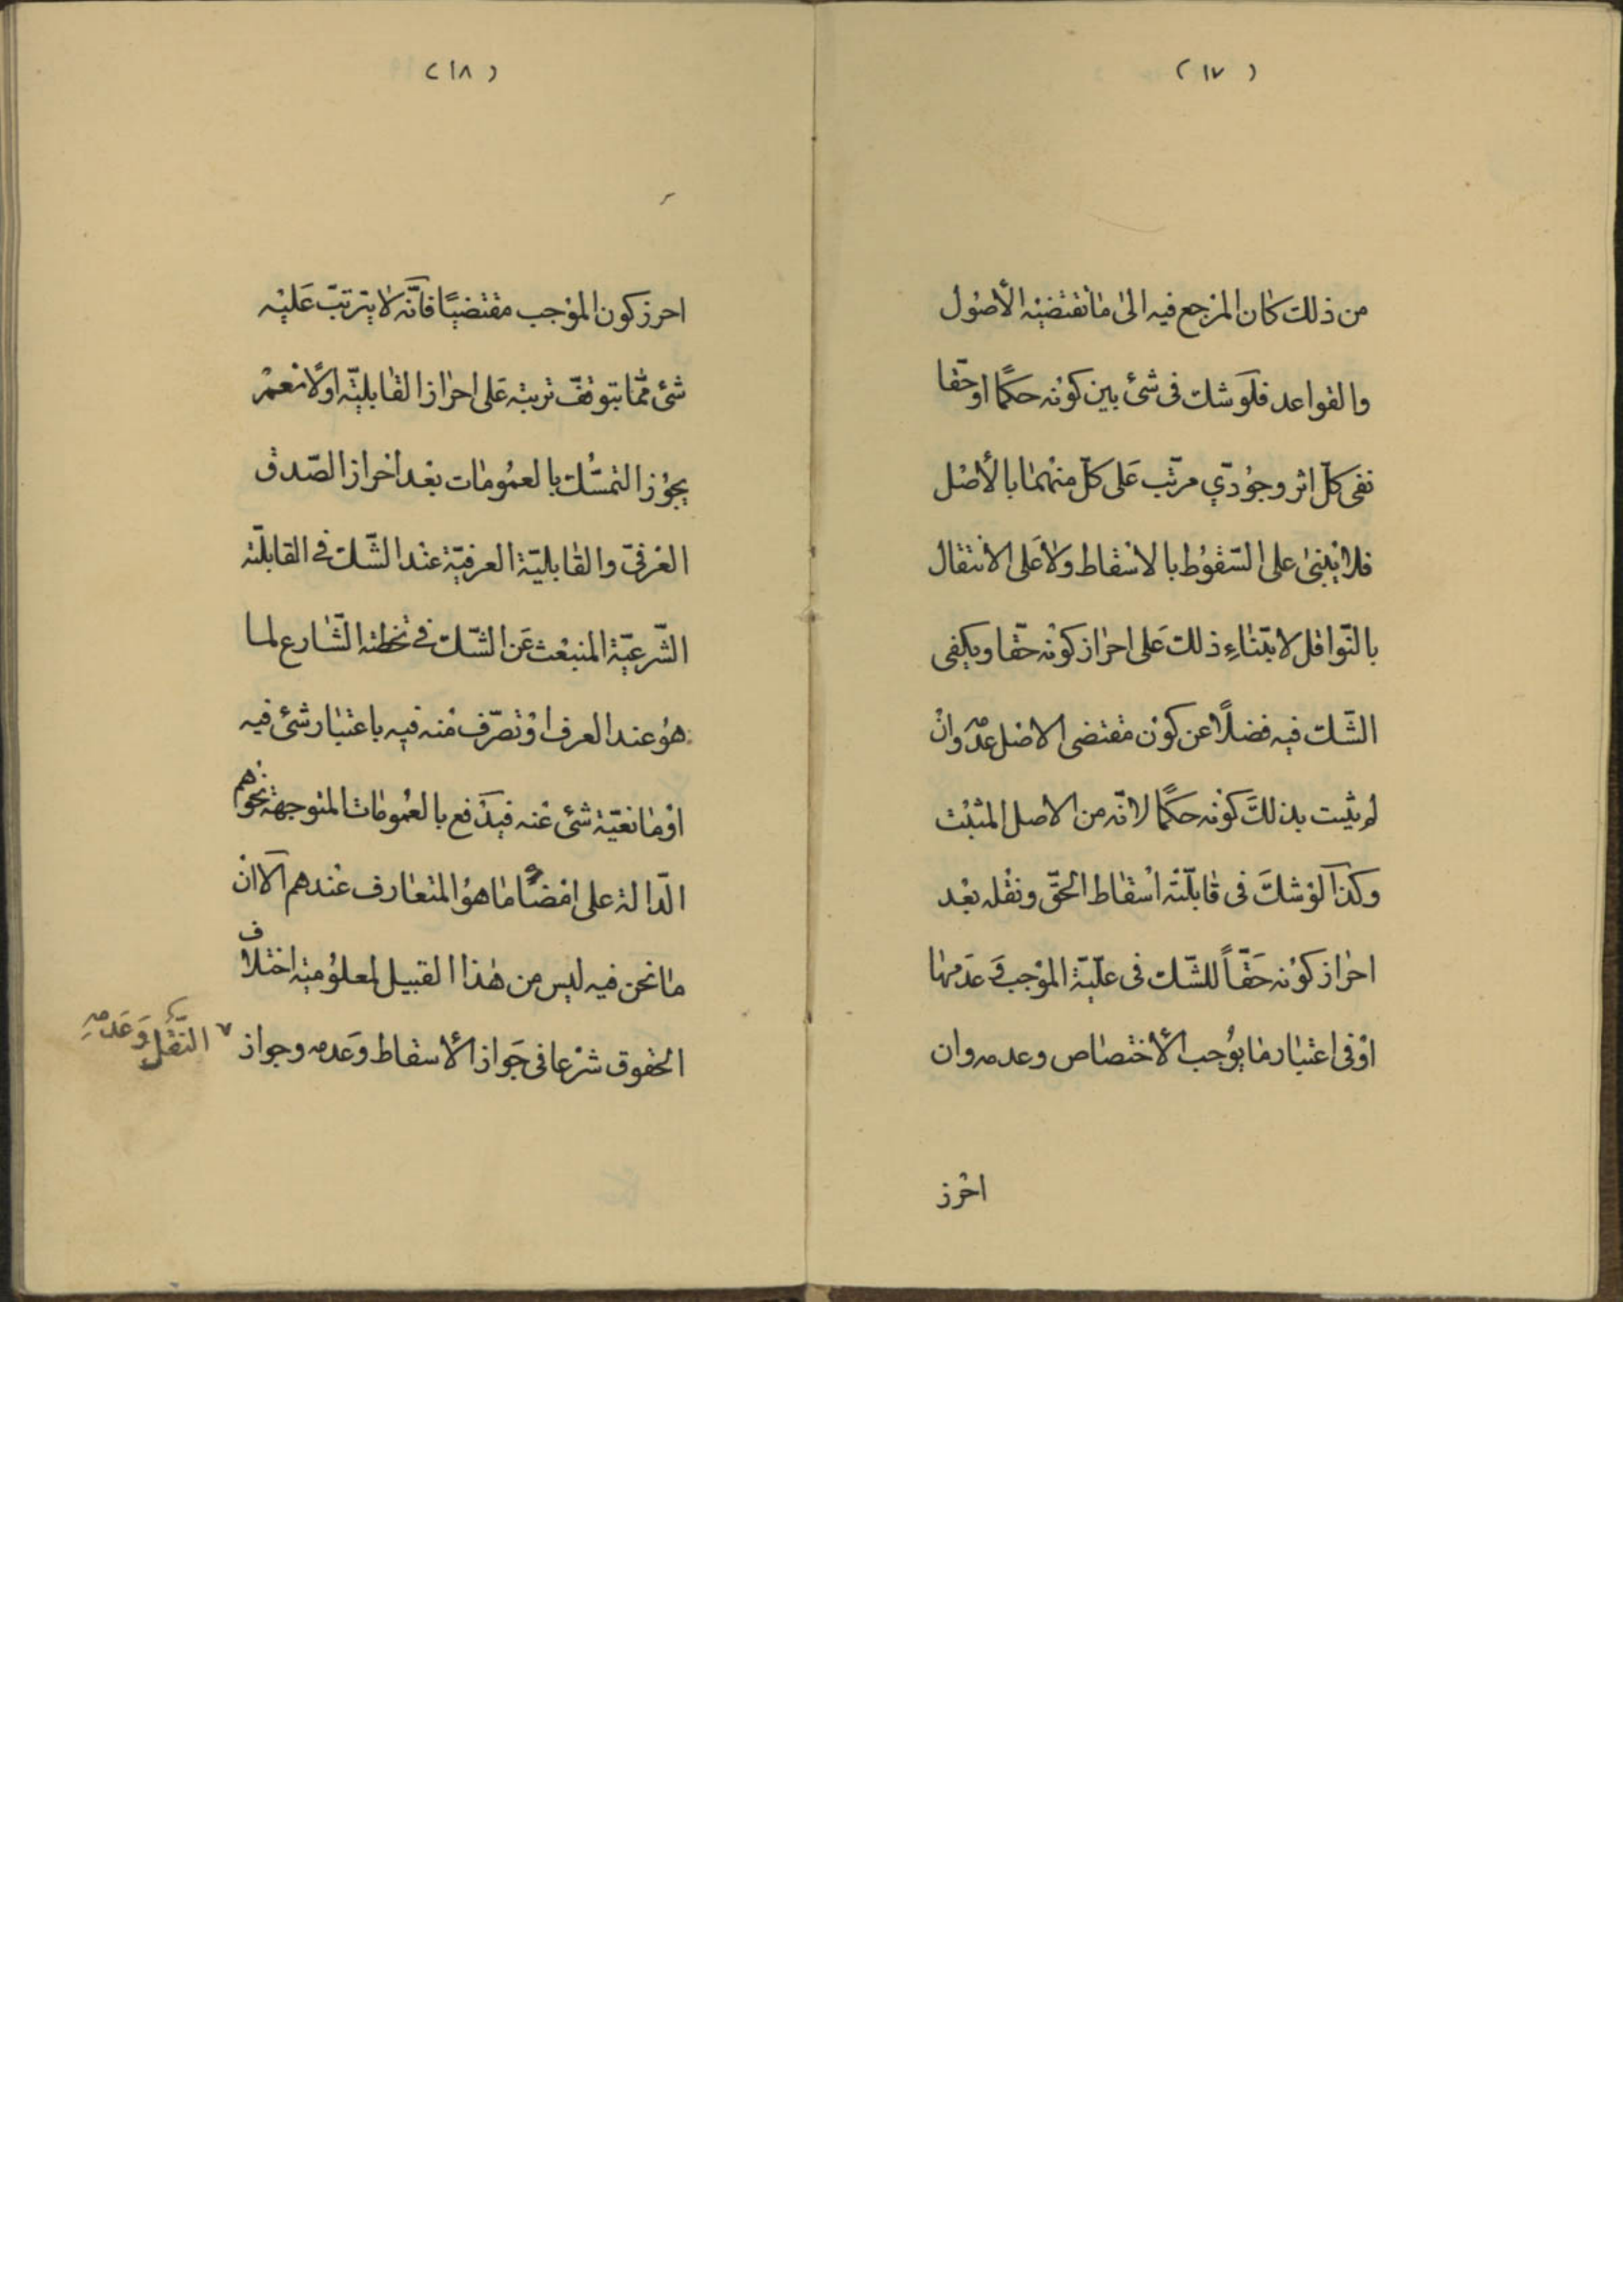 (١٧)
من ذلك كان المرجع فيه الى ما تقتضيه الأصول
والقواعد فلو شك فى شئ بين كونه حكمًا او حقّا
نفى كلّ اثر وجودّي مرتّب عَلى كلّ منهما بالأصل
فلا يبنى على السّقوط بالاسقاط ولا عَلى الانتقال
بالنّواقل لابتناءِ ذلك عَلى احراز كونه حقّا ويكفى
الشّك فيه فضلًا عن كون مقتضى الاصل عدمه وان
لم يثبت بذلك كونه حكمًا لانّه من الاصل المثبت
وكذا لو شك فى قابليّته اسقاط الحقّ ونقله بعد
احراز كونه حَقّاً للشّك فى علّيّة الموجب وَ عَدمها
او فى اعتبار ما يوُجب الأختصاص وعدمه وان
احرز
(١٨)
احرز كون الموجب مقتضيًا فانّه لا يترتب عَليه
شئ ممّا يتوقف ترتبه عَلى احراز القابليّه اولًا نعم
يجوز التمسُّك بالعمُومات بعد احراز الصّدق
العرفىّ والقابليّة العرفيّة عند الشّك فى القابليّة
الشّرعيّة المنبعث عَن الشّك فى تخطئة الشّارع لما
هوُ عند العرف او تصرّف منه فيه باعتبار شئ فيه
او مانعيّة شئ عنه فيدفع بالعمُومات المتوجهة نحوهم
الدّالة على امضاء ما هوُ المتعارف عندهم الّا انّ
ما نحن فيه ليس من هذا القبيل لمعلوُمية اختلاف
الحقوق شرعا فى جَواز الأسقاط وَعدمه وجواز
النّقل وَعَدمهِ